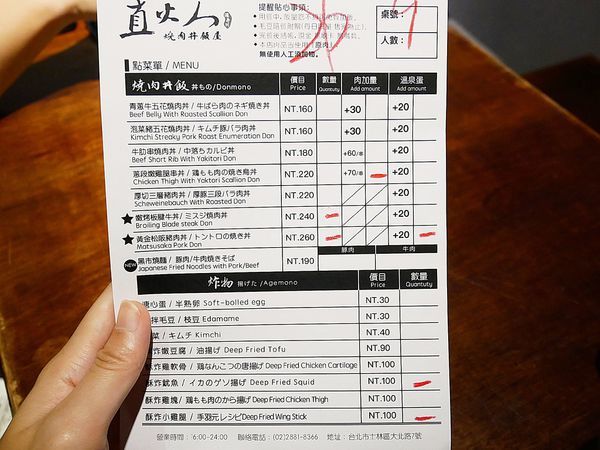 直火人
燒肉丼飯屋
提醒貼心事項:
無使用人工添加物。
桌號:
人數:
點菜單 / MENU
燒肉丼飯 丼もの/Donmono 價目 Price 數量 Quantuty 肉加量 Add amount 溫泉蛋 Add amount
青蔥牛五花燒肉丼 / 牛ばら肉のネギ焼き丼 NT.160 +30 +20
Beef Belly With Roasted Scallion Don
泡菜豬五花燒肉丼 / キムチ豚バラ肉丼 NT.160 +30 +20
Kimchi Streaky Pork Roast Enumeration Don
牛肋串燒肉丼 / 中落ちカルビ丼 NT.180 +60/串 +20
Beef Short Rib With Yakitori Don
蔥段嫩雞腿串丼 / 鶏もも肉の焼き鳥丼 NT.220 +70/串 +20
Chicken Thigh With Yakitori Scallion Don
厚切三層豬肉丼 / 厚豚三段バラ肉丼 NT.220 +20
Scheweinebauch With Roasted Don
★ 嫩烤板腱牛丼 / ミスジ燒肉丼 NT.240 +20
Broiling Blade steak Don
★ 黃金松阪豬肉丼 / トントロの焼き丼 NT.260 +20
Matsusaka Pork Don
豚肉 牛肉
NEW 黑市燒麵 / 豚肉/牛肉焼きそば NT.190
Japanese Fried Noodles with Pork/Beef
炸物 揚げた /Agemono 價目 Price 數量 Quantuty
心蛋 / 半熟卵 Soft-bolled egg NT.30
拌毛豆 / 枝豆 Edamame NT.30
菜 / キムチ Kimchi NT.40
炸嫩豆腐 / 油揚げ Deep Fried Tofu NT.90
酥炸雞軟骨 / 鶏なんこつの唐揚げ Deep Fried Chicken Cartiloge NT.100
酥炸魷魚 / イカのゲソ揚げ Deep Fried Squid NT.100
酥炸雞塊 / 鶏もも肉のから揚げ Deep Fried Chicken Thigh NT.100
酥炸小雞腿 / 手羽元レシピ Deep Fried Wing Stick NT.100
營業時間: 6:00-24:00 聯絡電話: (02)2881-8366 地址: 台北市士林區大北路7號